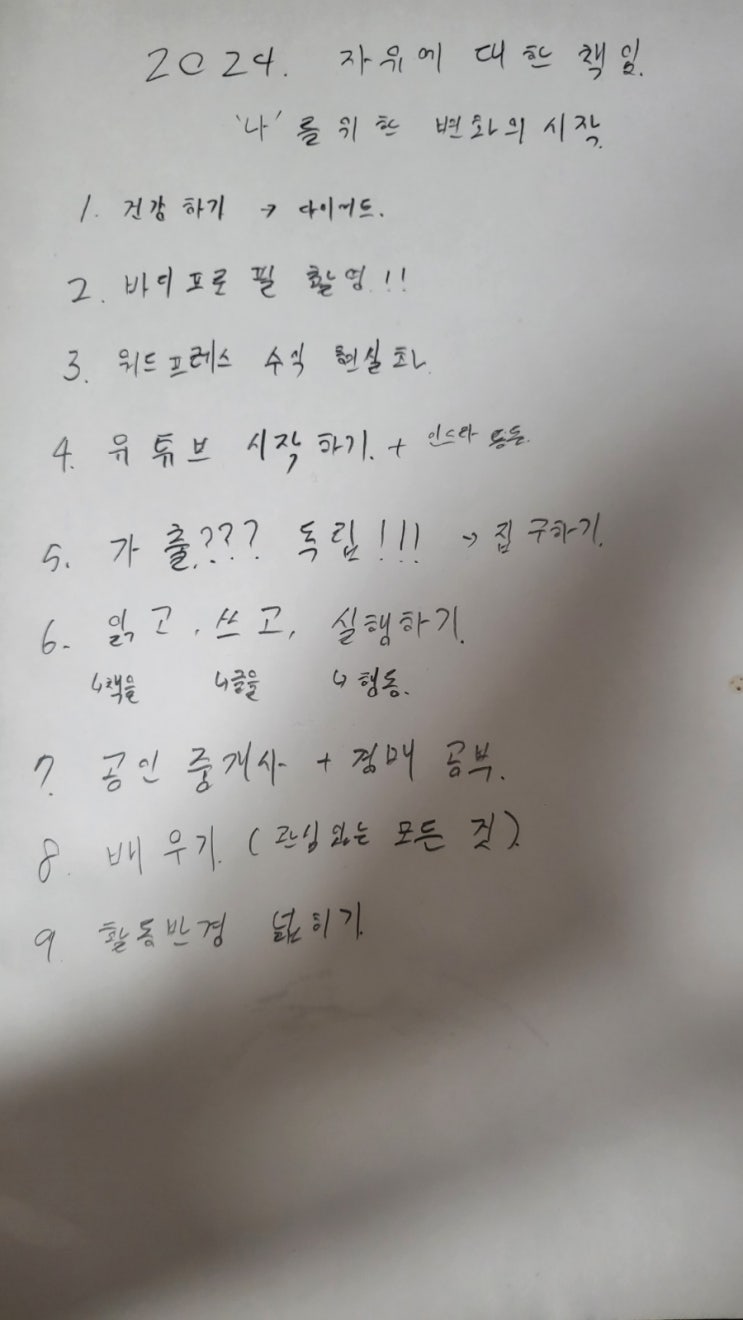 2024. 자유에 대한 책임.
'나'를 위한 변화의 시작.
1. 건강하기 → 다이어트.
2. 바디프로필 촬영!!
3. 워드프레스 수익 현실화.
4. 유튜브 시작하기. + 인스타 등등.
5. 가출??? 독립!!! → 집 구하기.
6. 읽고, 쓰고, 실행하기.
↳책을 ↳글을 ↳행동.
7. 공인중개사 + 경매 공부.
8. 배우기. (관심있는 모든 것).
9. 활동반경 넓히기.